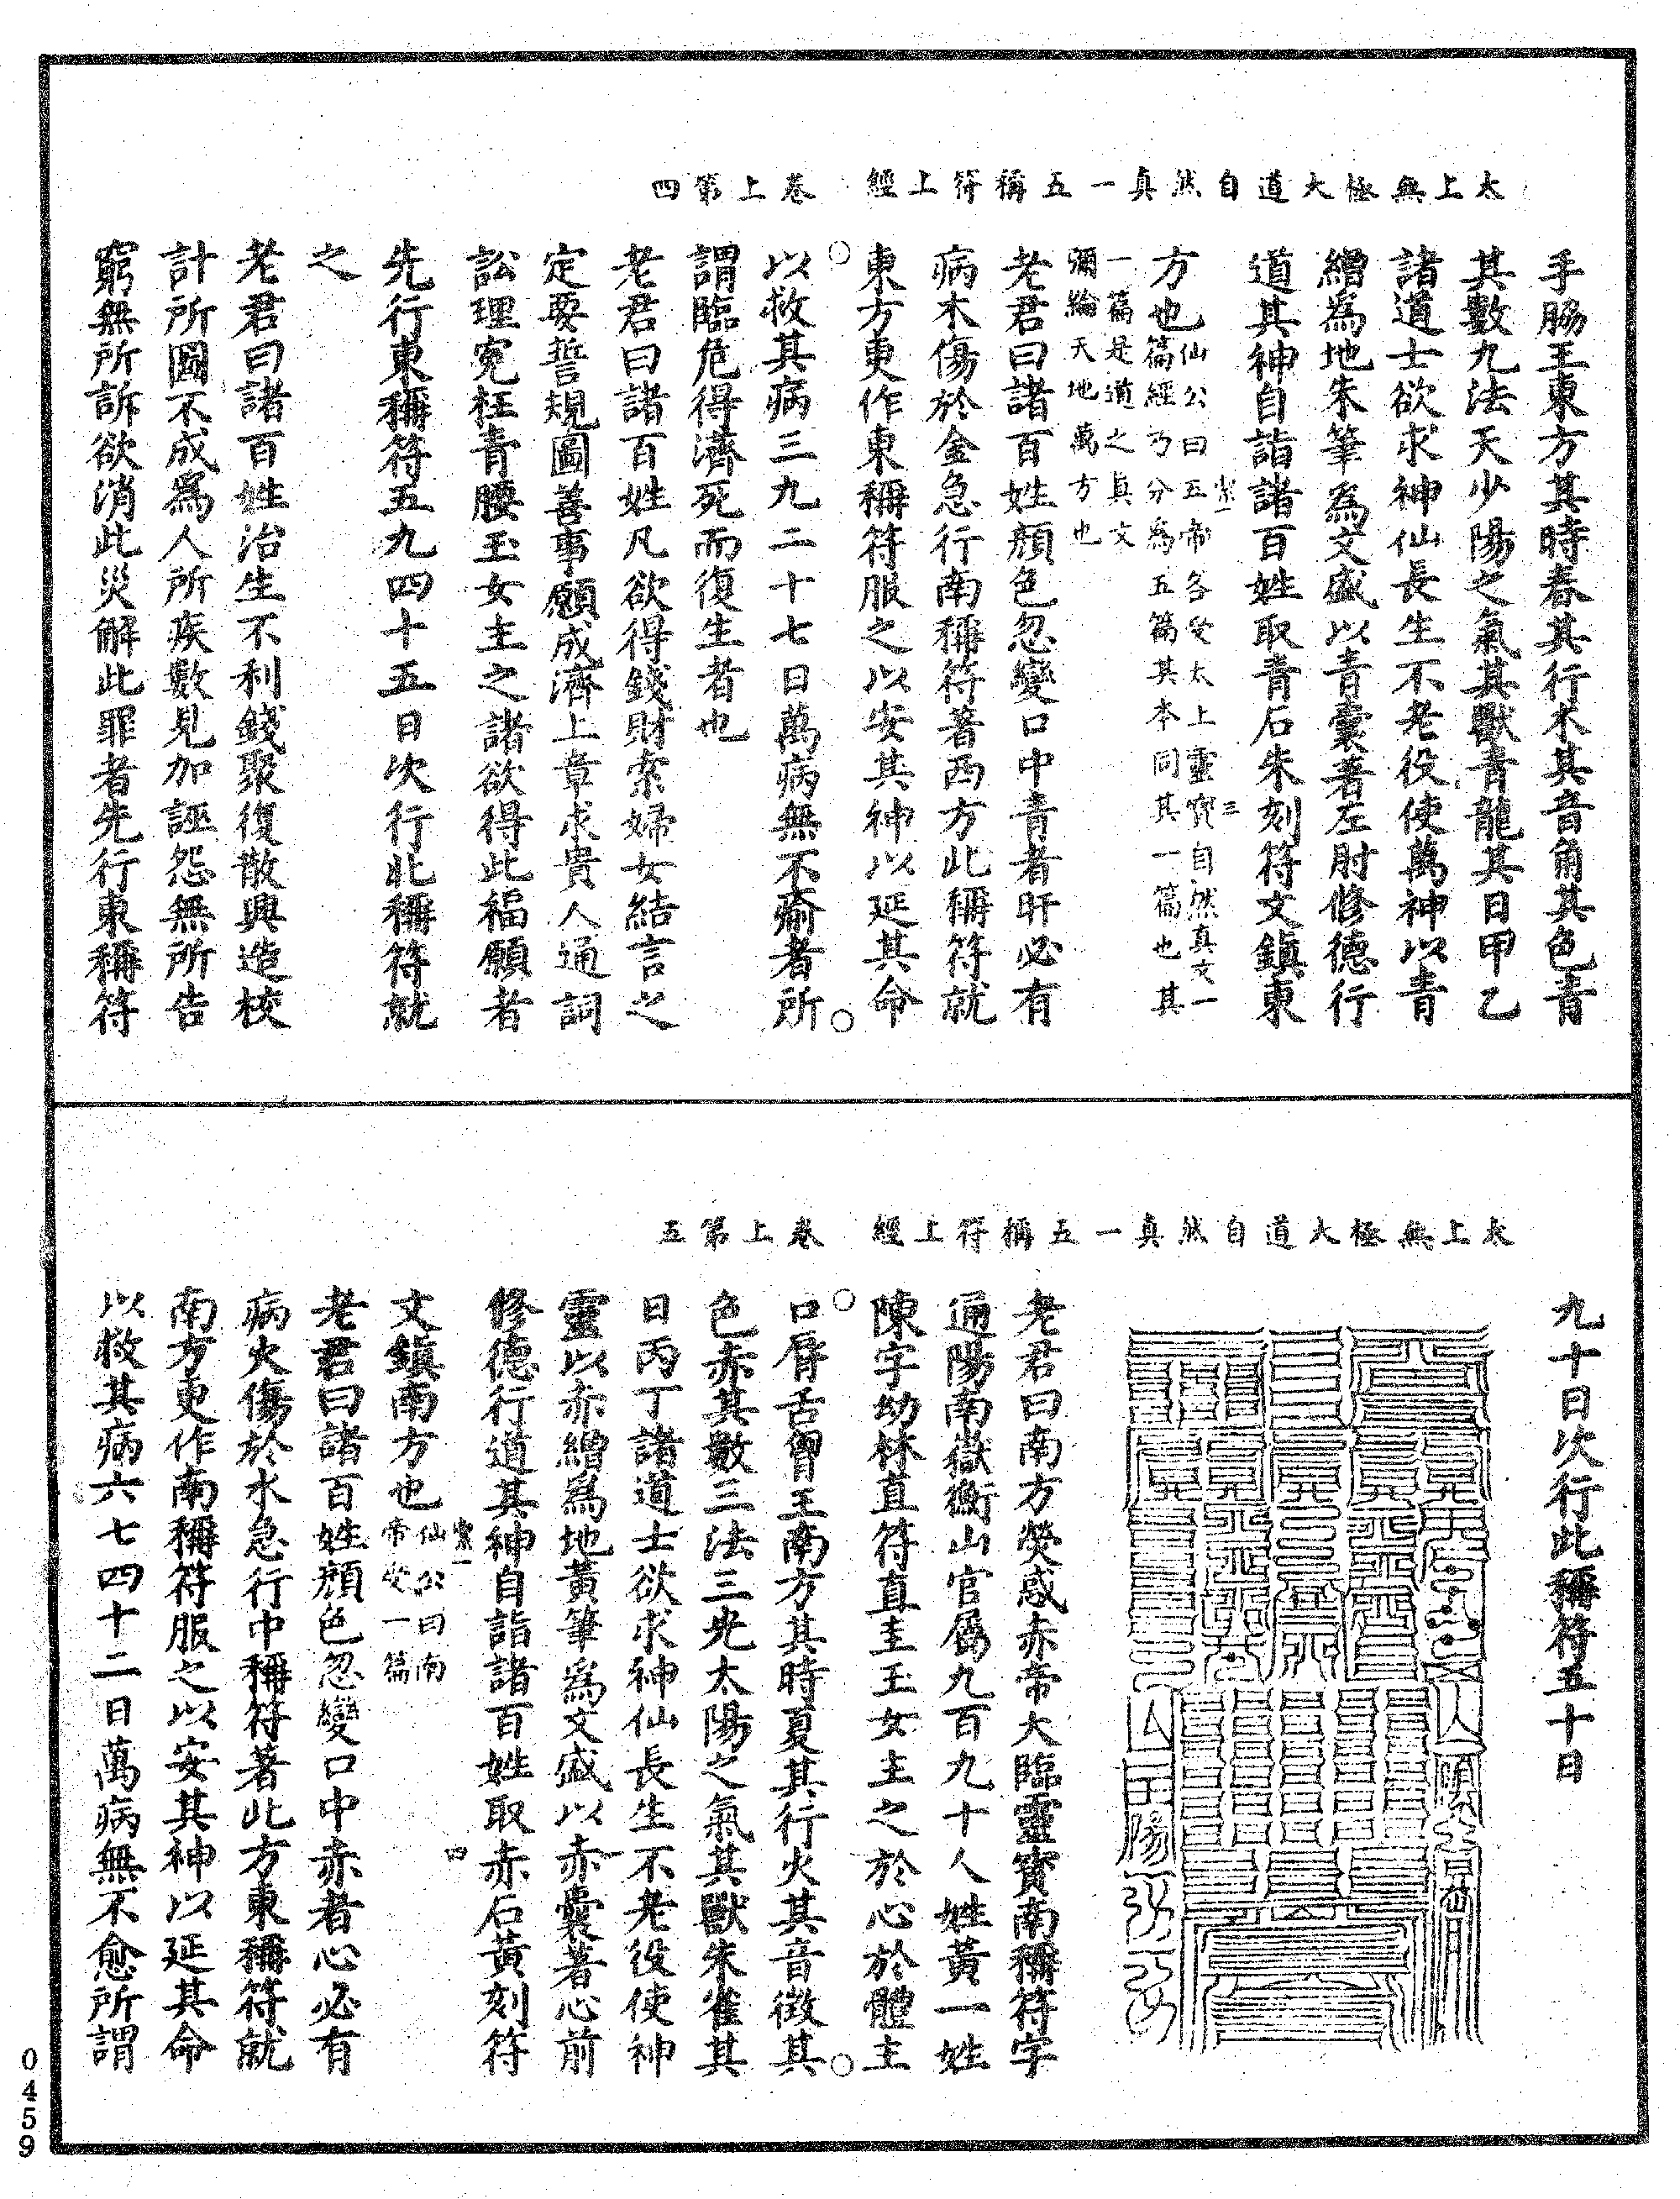 太上無極大道自然真一五稱符上經　卷上第四
手脇王東方其時春其行木其音角其色青
其數九法天少陽之氣其獸青龍其日甲乙
諸道士欲求神仙長生不老役使萬神以青
繒為地朱筆為文盛以青囊著左肘修德行
道其神自詣諸百姓取青石朱刻符文鎮東
方也
仙公曰五帝各受太上靈寶自然真文一
篇經乃分為五篇其本同其一篇也其
一篇是道之真文
彌綸天地萬方也
老君曰諸百姓顏色忽變口中青者肝必有
病木傷於金急行南稱符著西方此稱符就
東方更作東稱符服之以安其神以延其命
以救其病三九二十七日萬病無不愈者所
謂臨危得濟死而復生者也
老君曰諸百姓凡欲得錢財索婦女結言之
定要誓規圖善事願成濟上章求貴人通詞
訟理寃枉青腰玉女主之諸欲得此福願者
先行東稱符五九四十五日次行北稱符就
之
老君曰諸百姓治生不利錢聚復散興造校
計所圖不成為人所疾數見加誣怨無所告
窮無所訴欲消此災解此罪者先行東稱符
太上無極大道自然真一五稱符上經　卷上第五
九十日次行此稱符五十日
老君曰南方熒惑赤帝大臨靈寶南稱符字
通陽南嶽衡山官屬九百九十人姓黃一姓
陳字幼林直符直主王女主之於心於體主
口脣舌胷王南方其時夏其行火其音徵其
色赤其數三法三光太陽之氣其獸朱雀其
日丙丁諸道士欲求神仙長生不老役使神
靈以赤繒為地黃筆為文盛以赤囊著心前
修德行道其神自詣諸百姓取赤石黃刻符
文鎮南方也
仙公曰南
帝受一篇
老君曰諸百姓顏色忽變口中赤者心必有
病火傷於水急行中稱符著北方東稱符就
南方更作南稱符服之以安其神以延其命
以救其病六七四十二日萬病無不愈所謂
0459